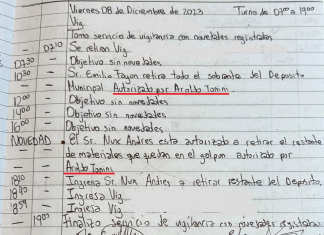 Viernes 08 de Diciembre de 2023 Turno de 07:00 a 19:00
Vig.
Tomo servicio de vigilancia con novedades registradas
— 07:10 Se retiran Vig.
07:30 — Objetivo sin novedades
10:30 — Sr. Emilio Tayon retira todo el sobrante del Deposito
— Municipal Autorizado por Aroldo Tonini
12:00 — Objetivo sin novedades
14:00 — Objetivo sin novedades
16:00 — Objetivo sin novedades
NOVEDAD • El Sr. Nux Andres esta autorizado a retirar el restante
de materiales que quedan en el galpon autorizado por
Aroldo Tonini
18:10 — Ingresa Sr. Nux Andres a retirar restante del Deposito
18:40 — Ingresa Vig
18:59 — Ingresa Vig
— 19:00 Finalizo servicio de vigilancia con novedades registradas